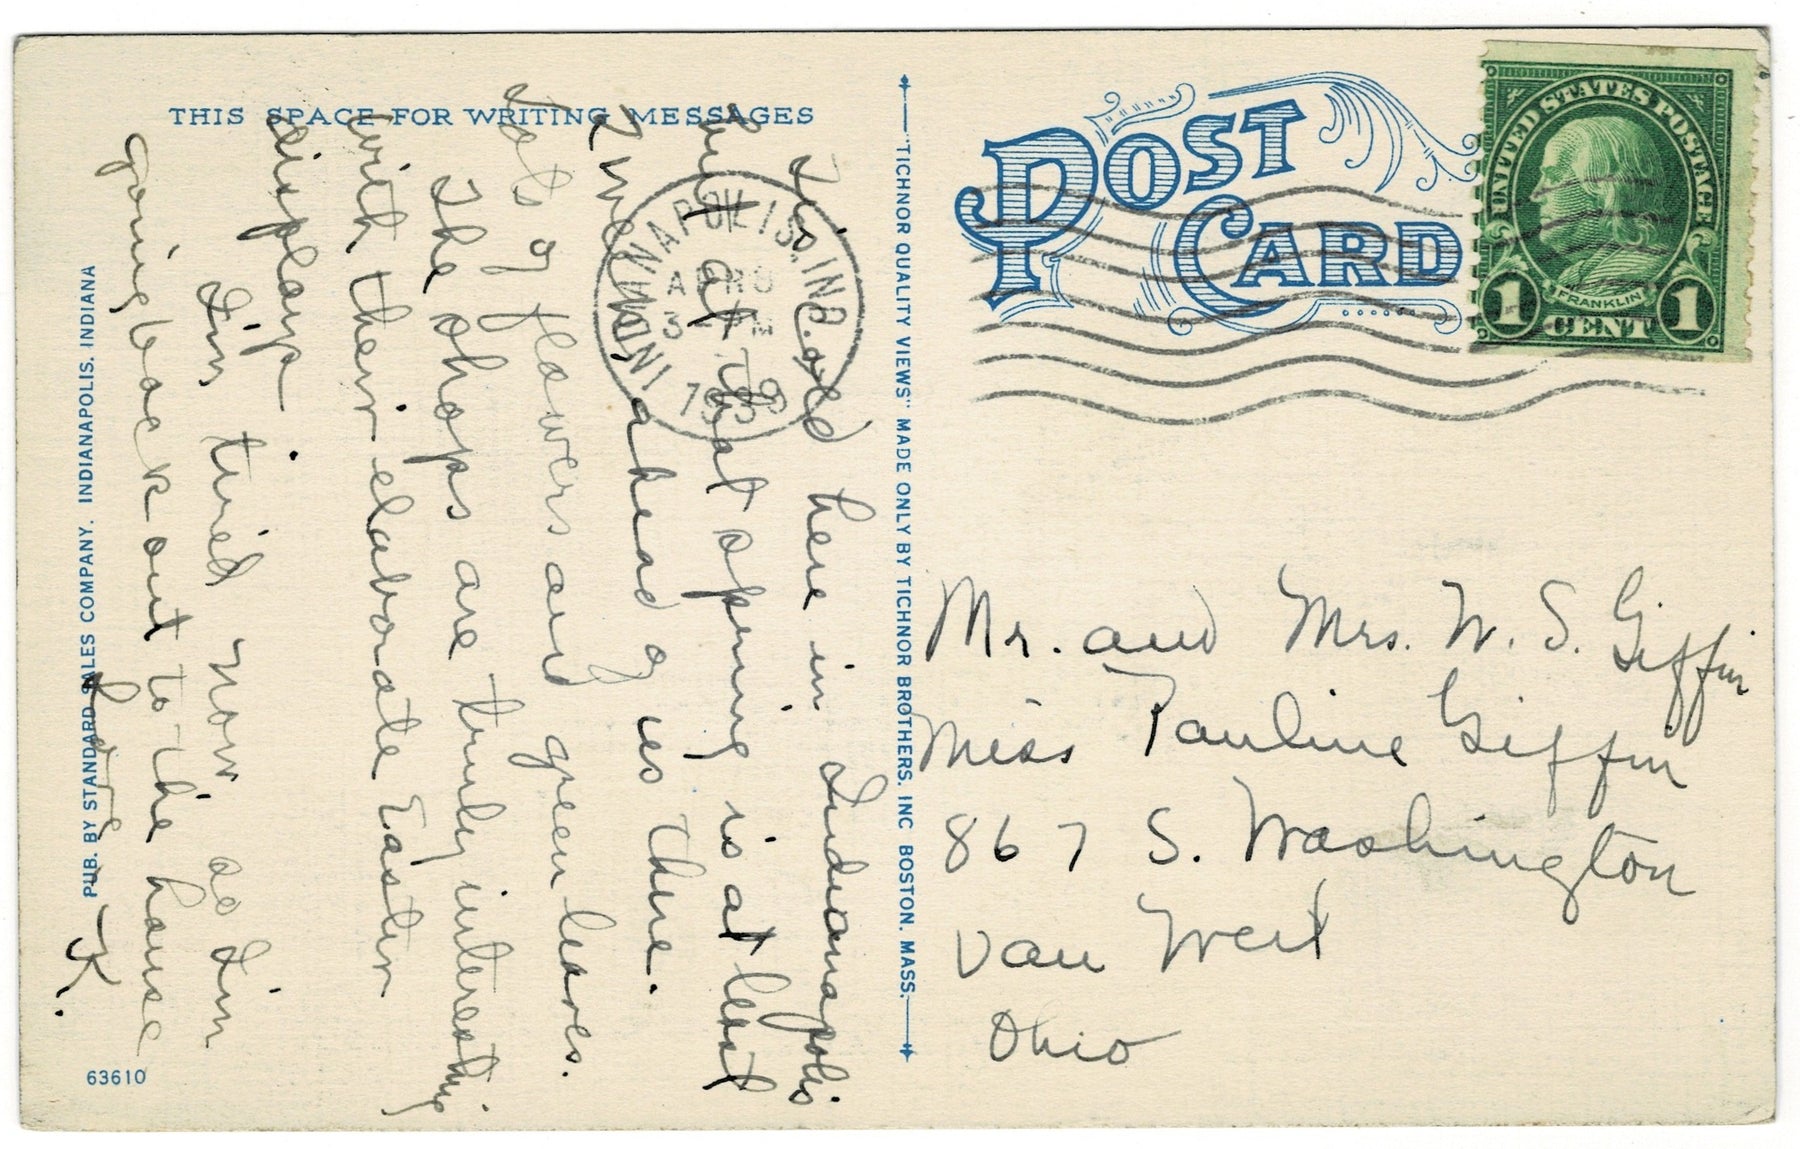 THIS SPACE FOR WRITING MESSAGES
It's cold here in Indianapolis
but at that spring is at least
2 weeks ahead of us there.
Lots of flowers and green leaves.
The shops are truly interesting
with their elaborate Easter
displays.
I'm tired now so I'm
going back out to the house
Love,
K.
PUB. BY STANDARD SALES COMPANY. INDIANAPOLIS. INDIANA
63610
"TICHNOR QUALITY VIEWS" MADE ONLY BY TICHNOR BROTHERS. INC BOSTON. MASS.
POST CARD
INDIANAPOLIS, IND.
APR
3 PM
UNITED STATES POSTAGE
FRANKLIN
1 CENT 1
Mr. and Mrs. W. S. Giffin
Miss Pauline Giffin
867 S. Washington
Van Wert
Ohio